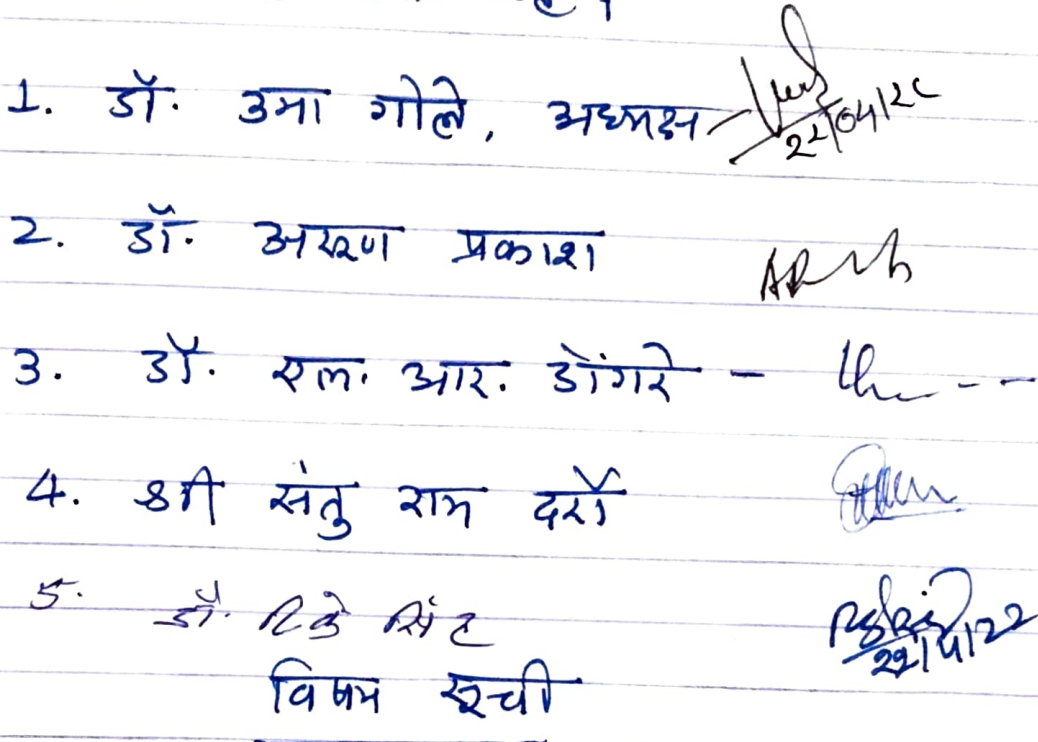 1. डॉ. उमा गोले, अध्यक्ष - 22/04/22
2. डॉ. अरूण प्रकाश
3. डॉ. एल. आर. डोंगरे -
4. श्री संतु राम दर्रो
5. डॉ. रिंकी सिंह 22/4/22
विषय सूची